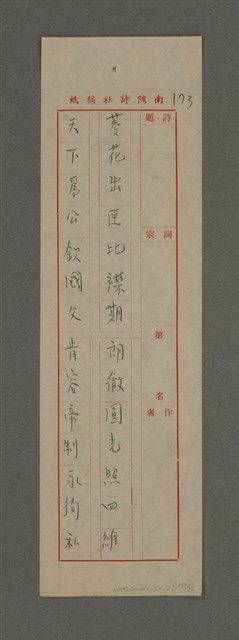 173
南陔詩社稿紙
詩題
詞宗
第 名
作者
菱花出匣比襟期朗徹圓光照四維
天下為公欽國父肯容帝制永徇私